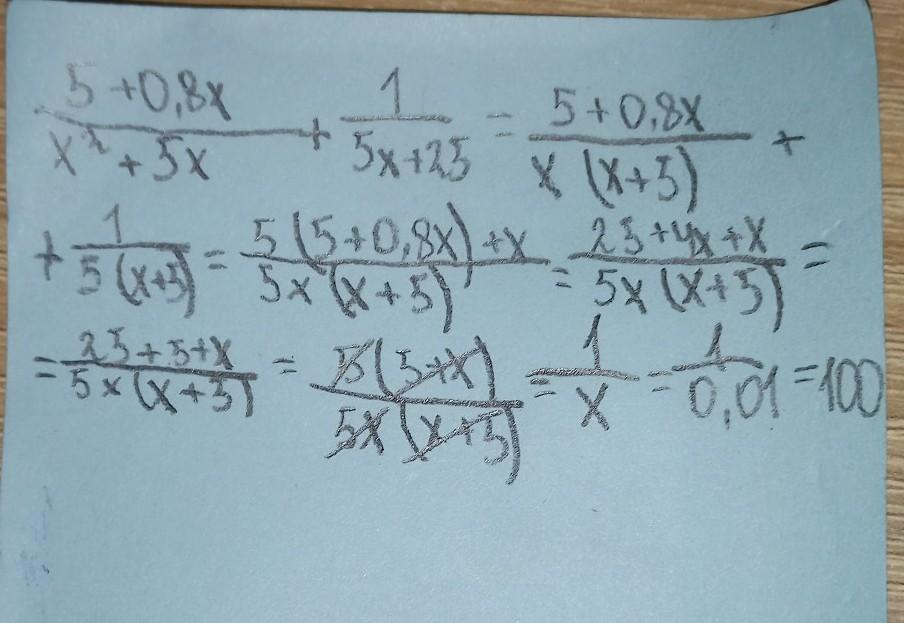 (5+0,8x)/(x²+5x) + 1/(5x+25) = (5+0,8x)/(x(x+5)) +
+ 1/(5(x+5)) = (5(5+0,8x)+x)/(5x(x+5)) = (25+4x+x)/(5x(x+5)) =
= (25+5+x)/(5x(x+5)) = (5(5+x))/(5x(x+5)) = 1/x = 1/0,01 = 100